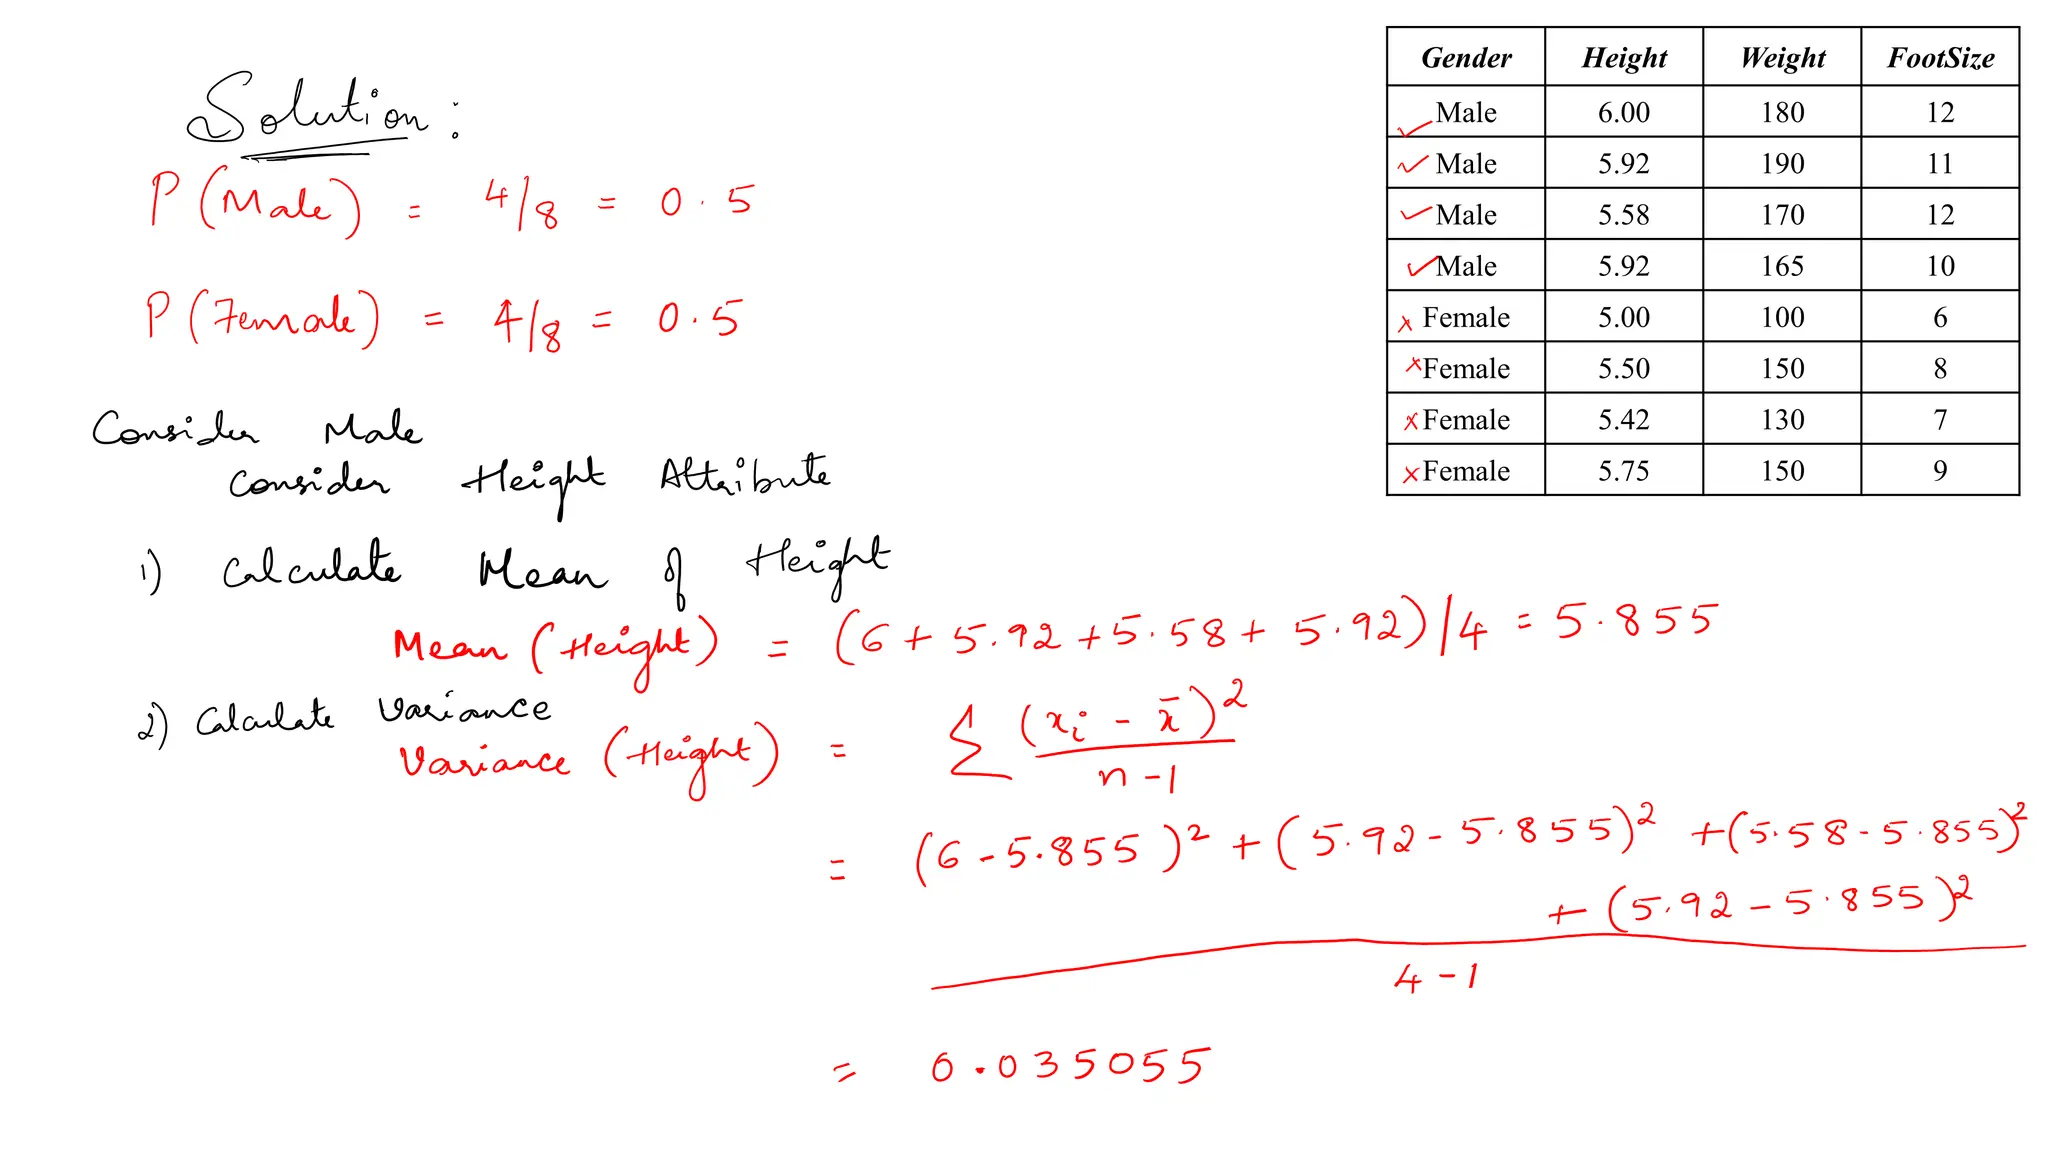 Solution:
P(Male) = 4/8 = 0.5
P(Female) = 4/8 = 0.5
Consider Male
Consider Height Attribute
1) Calculate Mean of Height
Mean (Height) = (6 + 5.92 + 5.58 + 5.92)/4 = 5.855
2) Calculate Variance
Variance (Height) = Σ (xᵢ - x̄)² / n-1
= (6 - 5.855)² + (5.92 - 5.855)² + (5.58 - 5.855)²
+ (5.92 - 5.855)²
4 - 1
= 0.035055
Gender Height Weight FootSize
✓ Male 6.00 180 12
✓ Male 5.92 190 11
✓ Male 5.58 170 12
✓ Male 5.92 165 10
x Female 5.00 100 6
x Female 5.50 150 8
x Female 5.42 130 7
x Female 5.75 150 9